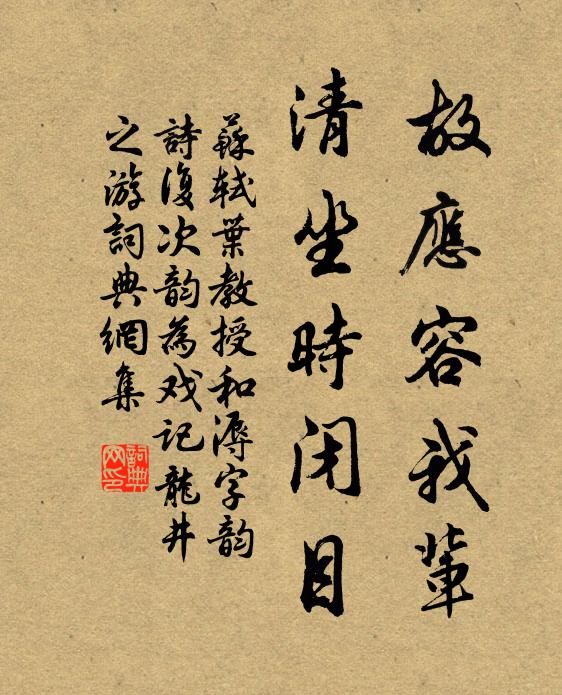 故應容我輩
清坐時閉目
蘇軾葉教授和溽字韵
詩復次韵為戏記龍井
之游詞典網集
詞典
网印